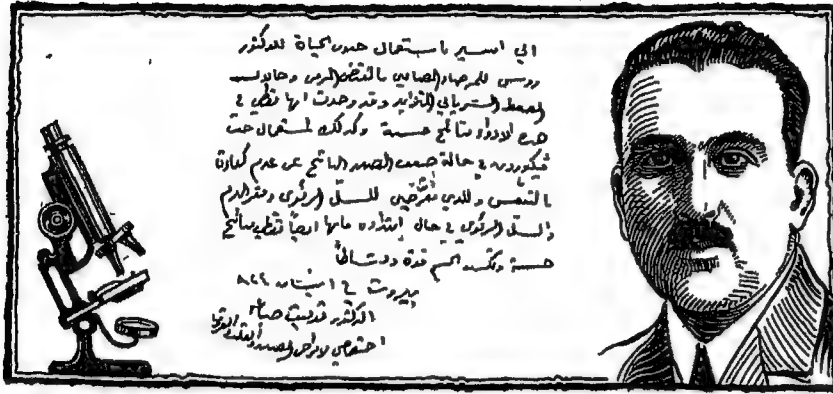 اني اشير باستعمال حبوب الحياة للدكتور
روس للمرضاء المصابين بالنقص الدموي وحالات
الضغط الشرياني المتزايد وقد وجدت انها تعطي في
هذه الادواء نتائج حسنة وكذلك استعمال حب
فيكورون في حالة ضعف الصدر الناتج عن عدم كفاءة
التنفس وللذي للسل الرئوي وفقر الدم
والسل الرئوي في حال إبتداءه فانها ايضاً تعطي نتائج
حسنة وتكسب الجسم قوة
بيروت في ١ نيسان
الدكتور
اختصاصي لامراض الصدر والقلب